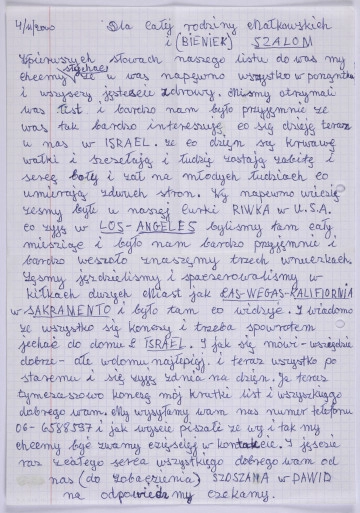 4/11/2000 Dla całej rodziny Małkowskich
i (BIENIEK) SZALOM
Wpierwszych słowach naszego listu do was my
chcemy słychać że u was napewno wszystko w porządku
i wszyscy jesteście zdrowy. Myśmy otrzymali
was list i bardzo nam było przyjemnie że
was tak bardzo interesuję co się dzieję teraz
u nas w ISRAEL. że co dzień są krwawę
walki i szczelają i ludzię zostają zabitę i
serce boły i żal na młodych ludziach co
umierają zdwuch stron. Wy napewno wiecię
żeśmy byłi u naszej curki RIWKA w U.S.A.
co żyję w LOS-ANGELES byliśmy tam cały
miesziąc i było nam bardzo przyjemnie i
bardzo wesoło znaszęmy trzech wnuczkach
żęśmy jeździeliśmy i spacserowaliśmy w
kiłkach dużych Miast jak ŁAS-WEGAS-KALIFIORNIA
w SAKRAMENTO i było tam co widzię. I wiadomo
że wszystko się kończy i trzeba spowrotem
jechać do domu ISRAEL. I jak się mówi - wszędzie
dobrze - ale wdomu najlepiej. i teraz wszystko po
staremu i się żyję zdnia na dzięń. Ja teraz
tymczaszowo kończę mój krutki list i wszyszkiego
dobrego wam. My wysyłamy wam nas numer telefonu
06-6588597 i jak wyście pisali że wy i tak my
chcemy być zwamy częściej w kontakcie. I jęscie
raz zcałego serca wszystkiego dobrego wam od
nas (do zobaczenia) SZOSZAMA w DAWID
na odpowiedz my czekamy.